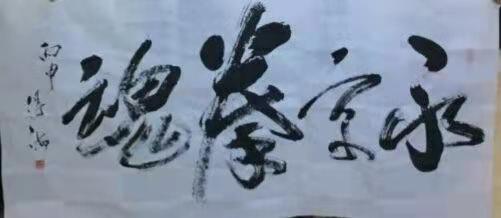 永字拳魂
丙申